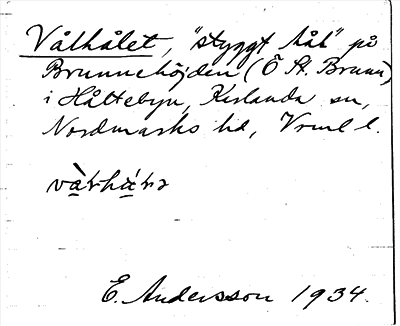 Vålhålet, "styggt hål" på
Brunnehöjden (Ö St. Brunn)
i Håltebyn, Karlanda sn,
Nordmarks hd, Vrml l.
E. Andersson 1934.